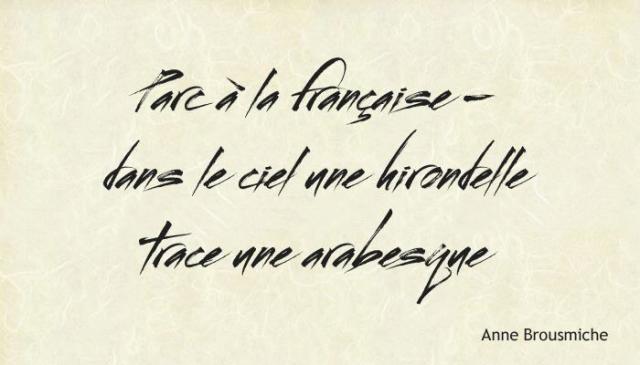 Parc à la française –
dans le ciel une hirondelle
trace une arabesque
Anne Brousmiche